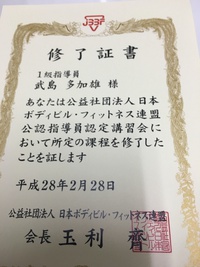 修了証書
1級指導員
武島 多加雄 様
あなたは公益社団法人 日本
ボディビル・フィットネス連盟
公認指導員認定講習会に
おいて所定の課程を修了した
ことを証します
平成28年2月28日
公益社団法人 日本ボディビル・フィットネス連盟
会長 玉利 齊